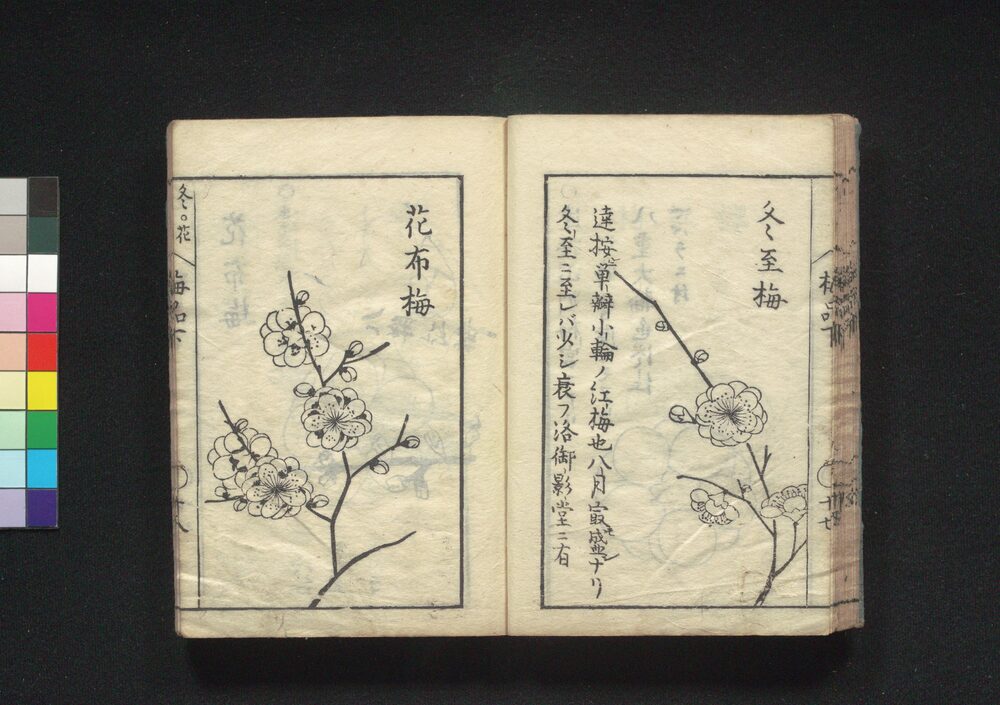 冬至梅
達按單瓣小輪ノ江梅也八月㝡盛ナリ
冬至ニ至レバ少シ衰フ洛御影堂ニ有
花布梅
冬○花
梅品下